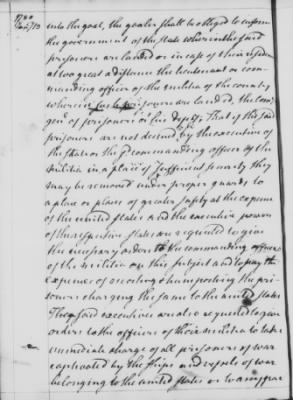 1780
Jany 13
into the goal, the goaler shall be obliged to inform
the government of the State wherein the said
prisoners are landed or in case of their residence
at too great a distance the lieutenant or com-
manding officer of the militia of the county
wherein such prisoners are landed, the Com.
Genl of prisoners or his deputy. That if the said
prisoners are not deemed by the executive of
the State or the commanding officer of the
militia in a place of sufficient security they
may be removed under proper guards to
a place or places of greater safety at the expence
of the united states and the executive powers
of the respective states are requested to give
the necessary orders to the commanding officers
of the militia on this subject and to pay the
expence of escorting & transporting the pri-
soners charging the same to the united states
The said executives are also requested to give
orders to the officers of their militia to take
immediate charge of all prisoners of war
captivated by the ships and vessels of war
belonging to the united states or to any